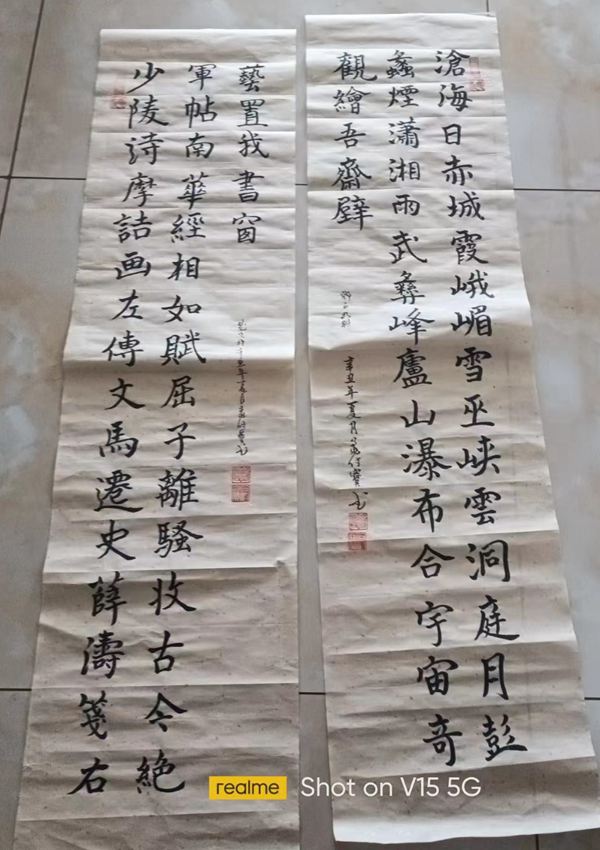 滄海日赤城霞峨嵋雪巫峽雲洞庭月彭
蠡煙瀟湘雨武彝峰廬山瀑布合宇宙奇
觀繪吾齋壁
辛丑年夏月
少陵詩摩詰画左傳文馬遷史薛濤箋右
軍帖南華經相如賦屈子離騷收古今絕
藝置我書窗
realme Shot on V15 5G